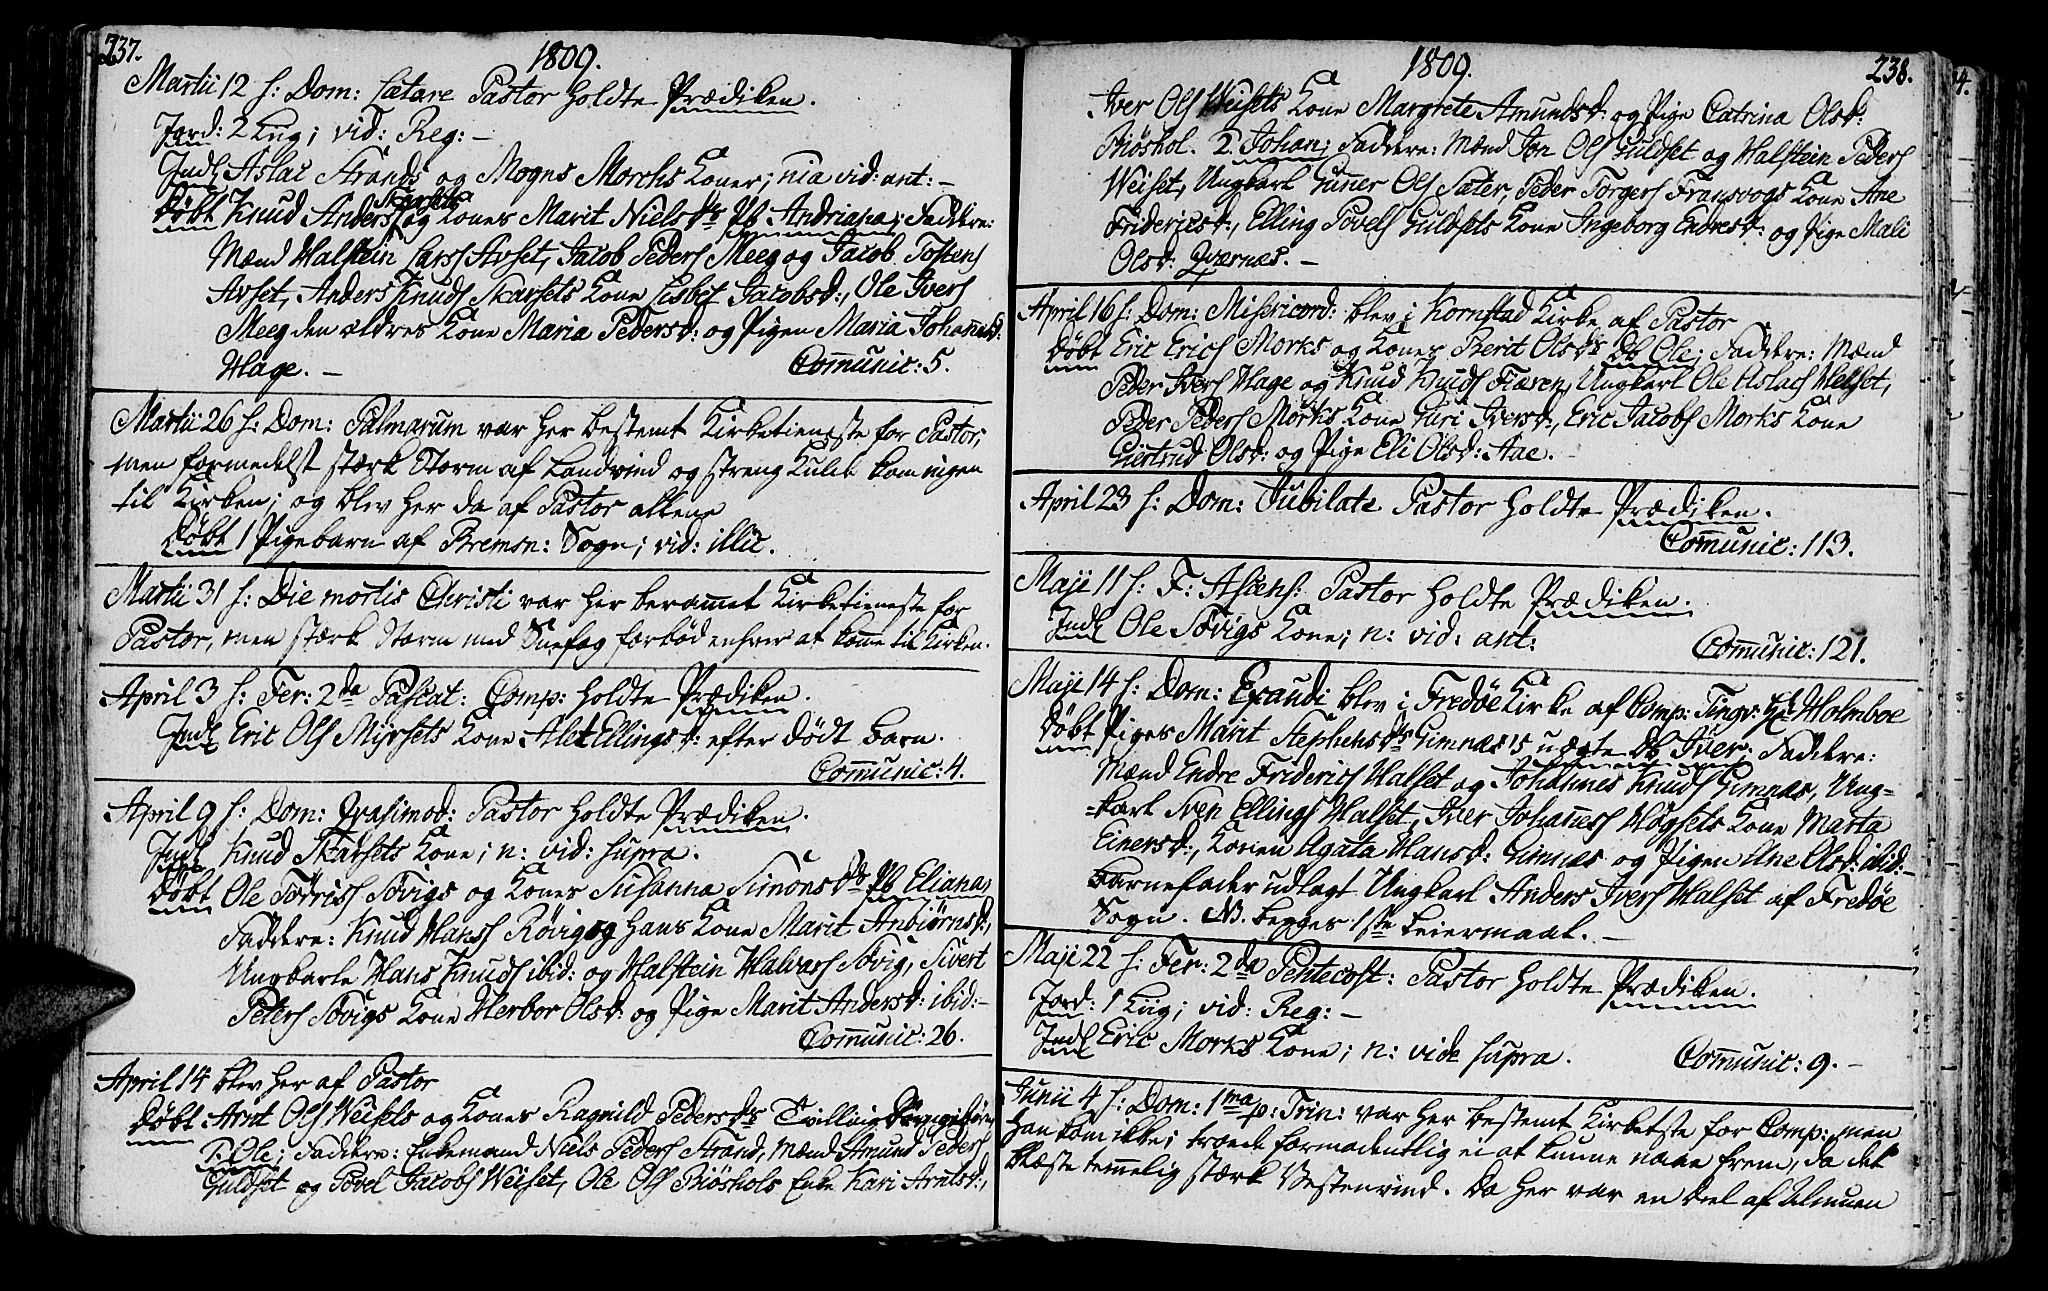 237.
1809.
Martii 12 s: Dom: Lætare Pastor holdte Prædiken.
Jord: 2 Lig; vid: Reg: –
Indl Aslac Strands og Mogns Morchs Koner; nia vid: ant: –
Skarsets
Døbt Knud Anders og Kones Marit Niels Ds Pb Andriana; Faddere:
Mænd Halstein Larss Avset, Jacob Peders Meeg og Jacob Tostens
Avset, Anders Knuds Skarsets Kone Lisbet Jacobsd:, Ole Ivers
Meeg den ældres Kone Maria Pedersd: og Pigen Maria Johannesd:
Hage. –
Communic: 5.
Martii 26 s: Dom: Palmarum var her bestemt Kirketieneste for Pastor,
men formedelst stærk Storm af Landvind og streng Kulde kom ingen
til Kirken; og blev her da af Pastor allene
Døbt 1 Pigebarn af Bremsn: Sogn; vid: illic.
Martii 31 s: Die mortis Christi var her berammet Kirketieneste for
Pastor, men stærk Storm med Snefog forbød enhver at komme til Kirken.
April 3 s: Fer: 2da Paschat: Comp: holdte Prædiken.
Indl Eric Ols Myrsets Kone Alet Ellingsd: efter dødt Barn.
Communic: 4.
April 9 s: Dom: Qvasimod: Pastor holdte Prædiken.
Indl Knud Skarsets Kone; n: vid: supra.
Døbt Ole Torriss Søvigs og Kones Susanna Simons Ds Pb Eliana,
Faddere: Knud Hanss Røvig og hans Kone Marit Anbiörnsd:,
Ungkarle Hans Knuds ibid: og Halstein Halvars Søvig, Sivert
Peters Søvigs Kone Herbor Olsd: og Pige Marit Andersd: ibid: –
Communic: 26.
April 14 blev her af Pastor
Døbt Arnt Ols Weisets og Kones Ragnild Peders Ds Tvilling Drengebørn
1. Ole; Faddere: Enkemand Niels Peders Strand, Mænd Amund Peders
Guldset og Povel Jacobs Weiset, Ole Ols Biøshols Enke Kari Arntsd:,
1809.
238.
Iver Ols Weisets Kone Margrete Amundsd: og Pige Catrina Olsd:
Biøshol. 2. Johan; Faddere: Mænd Jon Ols Guldset og Halstein Peders
Weiset, Ungkarl Guner Ols Sæter, Peder Torgers Fransvogs Kone Ane
Fridericsd:, Elling Povels Guldsets Kone Ingeborg Endresd: og Pige Mali
Olsd: Qvernes. –
April 16 s: Dom: Misericord: blev i Kornstad Kirke af Pastor
Døbt Eric Erics Morks og Kones Berit Olsds Db Ole; Faddere: Mænd
Peder Ivers Hage og Knud Knuds Fiæren, Ungkarl Ole Aslacs Helset,
Peder Peders Mørks Kone Guri Iversd:, Eric Jacobs Morks Kone
Giertrud Olsd: og Pige Eli Olsd: Aae.
April 23 s: Dom: Jubilate Pastor holdte Prædiken.
Communic: 113.
Maji 11 s: F: Ascens: Pastor holdte Prædiken.
Indl Ole Søvigs Kone; n: vid: ant:
Communic: 121.
Maji 14 s: Dom: Exaudi blev i Fredøe Kirke af Comp: Tingv: Hr Holmboe
Døbt Piges Marit Stephens Ds Gimnæs's uægte Db Iver; Faddere:
Mænd Endre Frideriss Halset og Johannes Knuds Gimnæs, Ung-
karl Sven Ellings Halset, Iver Johaness Høgsets Kone Marta
Einersd:, Konen Agata Hansd: Gimnæs og Pigen Ane Olsd: ibid: –
Barnefader udlagt Ungkarl Anders Ivers Halset af Fredøe
Sogn. NB. begges 1ste Leiermaal. –
Maji 22 s: Fer: 2da Pentecost: Pastor holdte Prædiken.
Jord: 1 Liig; vid: Reg: –
Indl Eric Morks Kone; n: vide supra.
Communic: 9. –
Junii 4 s: Dom: 1ma p: Trin: var her bestemt Kirketste for Comp: men
han kom ikke; troede formodentlig ei at kunne naae frem, da det
blæste temmelig stærk Vestenvind. Da her var en Deel af Almuen